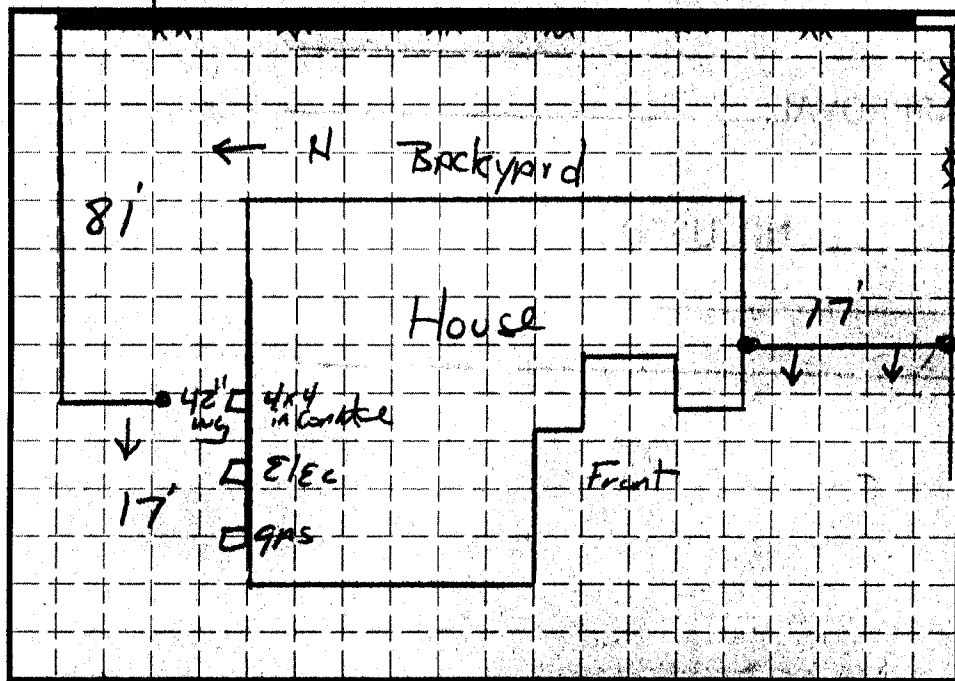 ← N Backyard
81'
House
17'
42" 4x4
in Concrete
Elec
17'
Front
gas